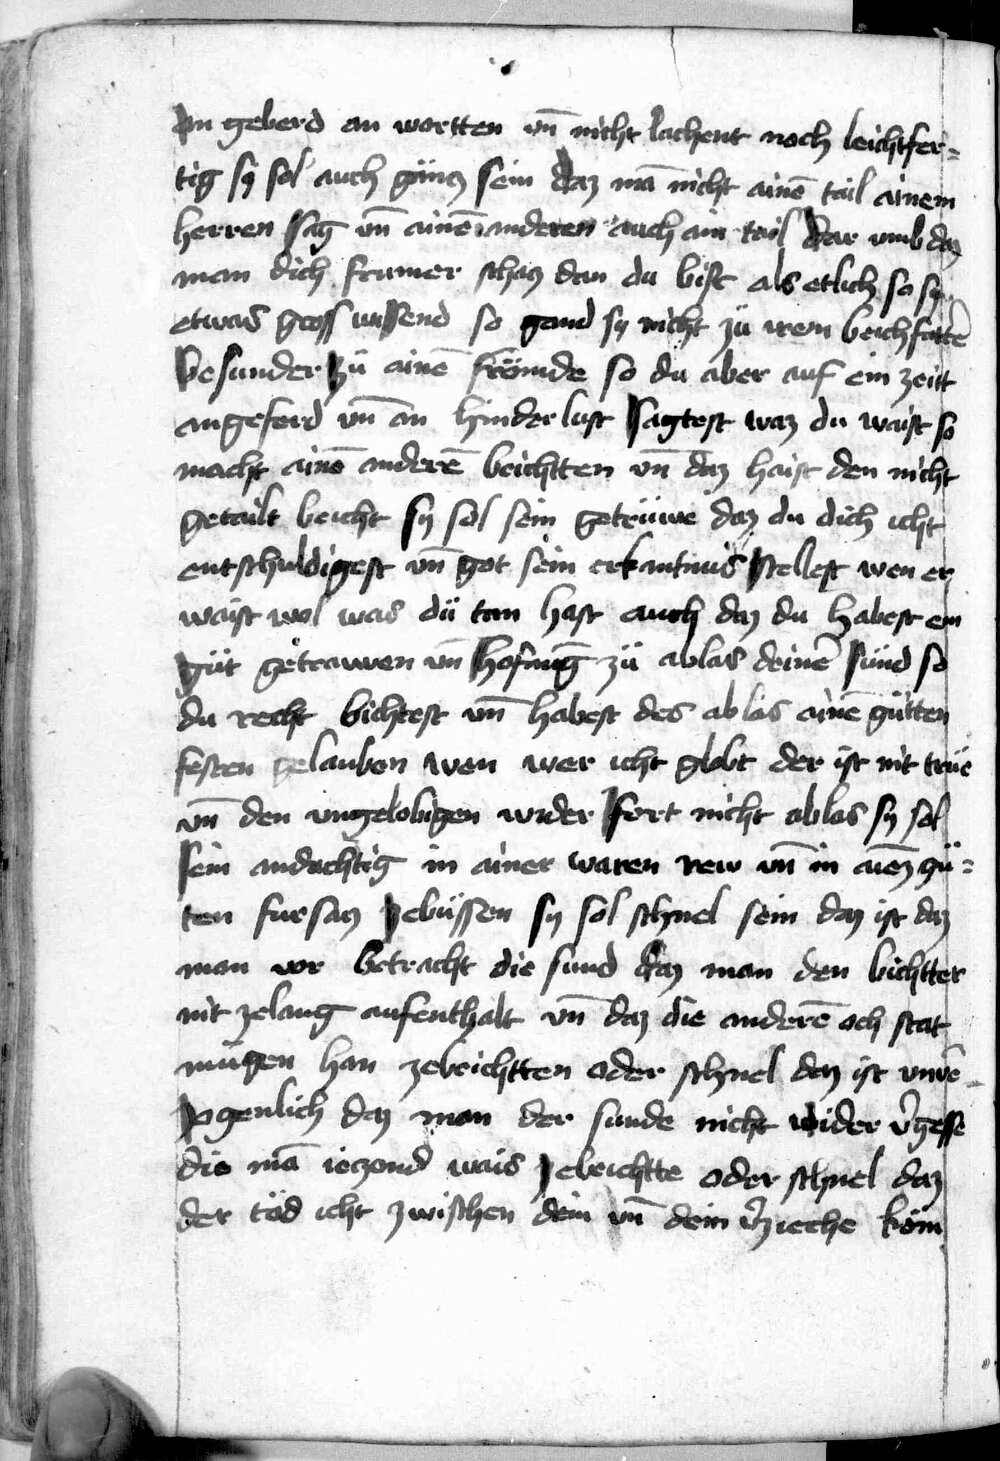 an geberd an wortten vn̄ nicht lachent noch leichtfer=
tig sÿ sol auch gäncz sein daz mā nicht ainē tail ainem
herren sag vn̄ ainē anderen auch ain tail dar vmb daz
man dich frumer schacz dan du bist als etlich so sÿ
etwas gross wissend so gand sÿ nicht zü irem beichfattē
besunder zü ainē frömde so du aber auf ein zeitt
angeferd vn̄ an hinderlust sagtest waz du waist so
macht ainē anderē beichtten vn̄ daz haist den nicht
getailt beicht sÿ sol sein getrüwe daz du dich icht
entschuldigest vn̄ got sein erkantnus stellest wen er
waist wol was dü tan hast auch daz du habest ein
güt getrawen vn̄ hofnug̅ zü ablas deinē sünd so
du recht bichtest vn̄ habest des ablas ainē gütten
festen gelauben wen wer icht globt der ist nit trüe
vn̄ den vngelobigen wider fort nicht ablas sÿ sol
sein andachtig in ainer waren rew vn̄ in aiēz gü=
ten fursacz zebüssen sÿ sol schnel sein daz ist daz
man vor betracht die sund daz man den bichtter
nit zelang aufenthalt vn̄ daz die anderē och stat
mügen han zebeichtten oder schnel daz ist vnvē=
zogenlich daz man der sunde nicht wider v̄gesse
die mā ieczond wais zebeichtte oder schnel daz
der töd icht zwischen dein vn̄ dem v̄zieche köm